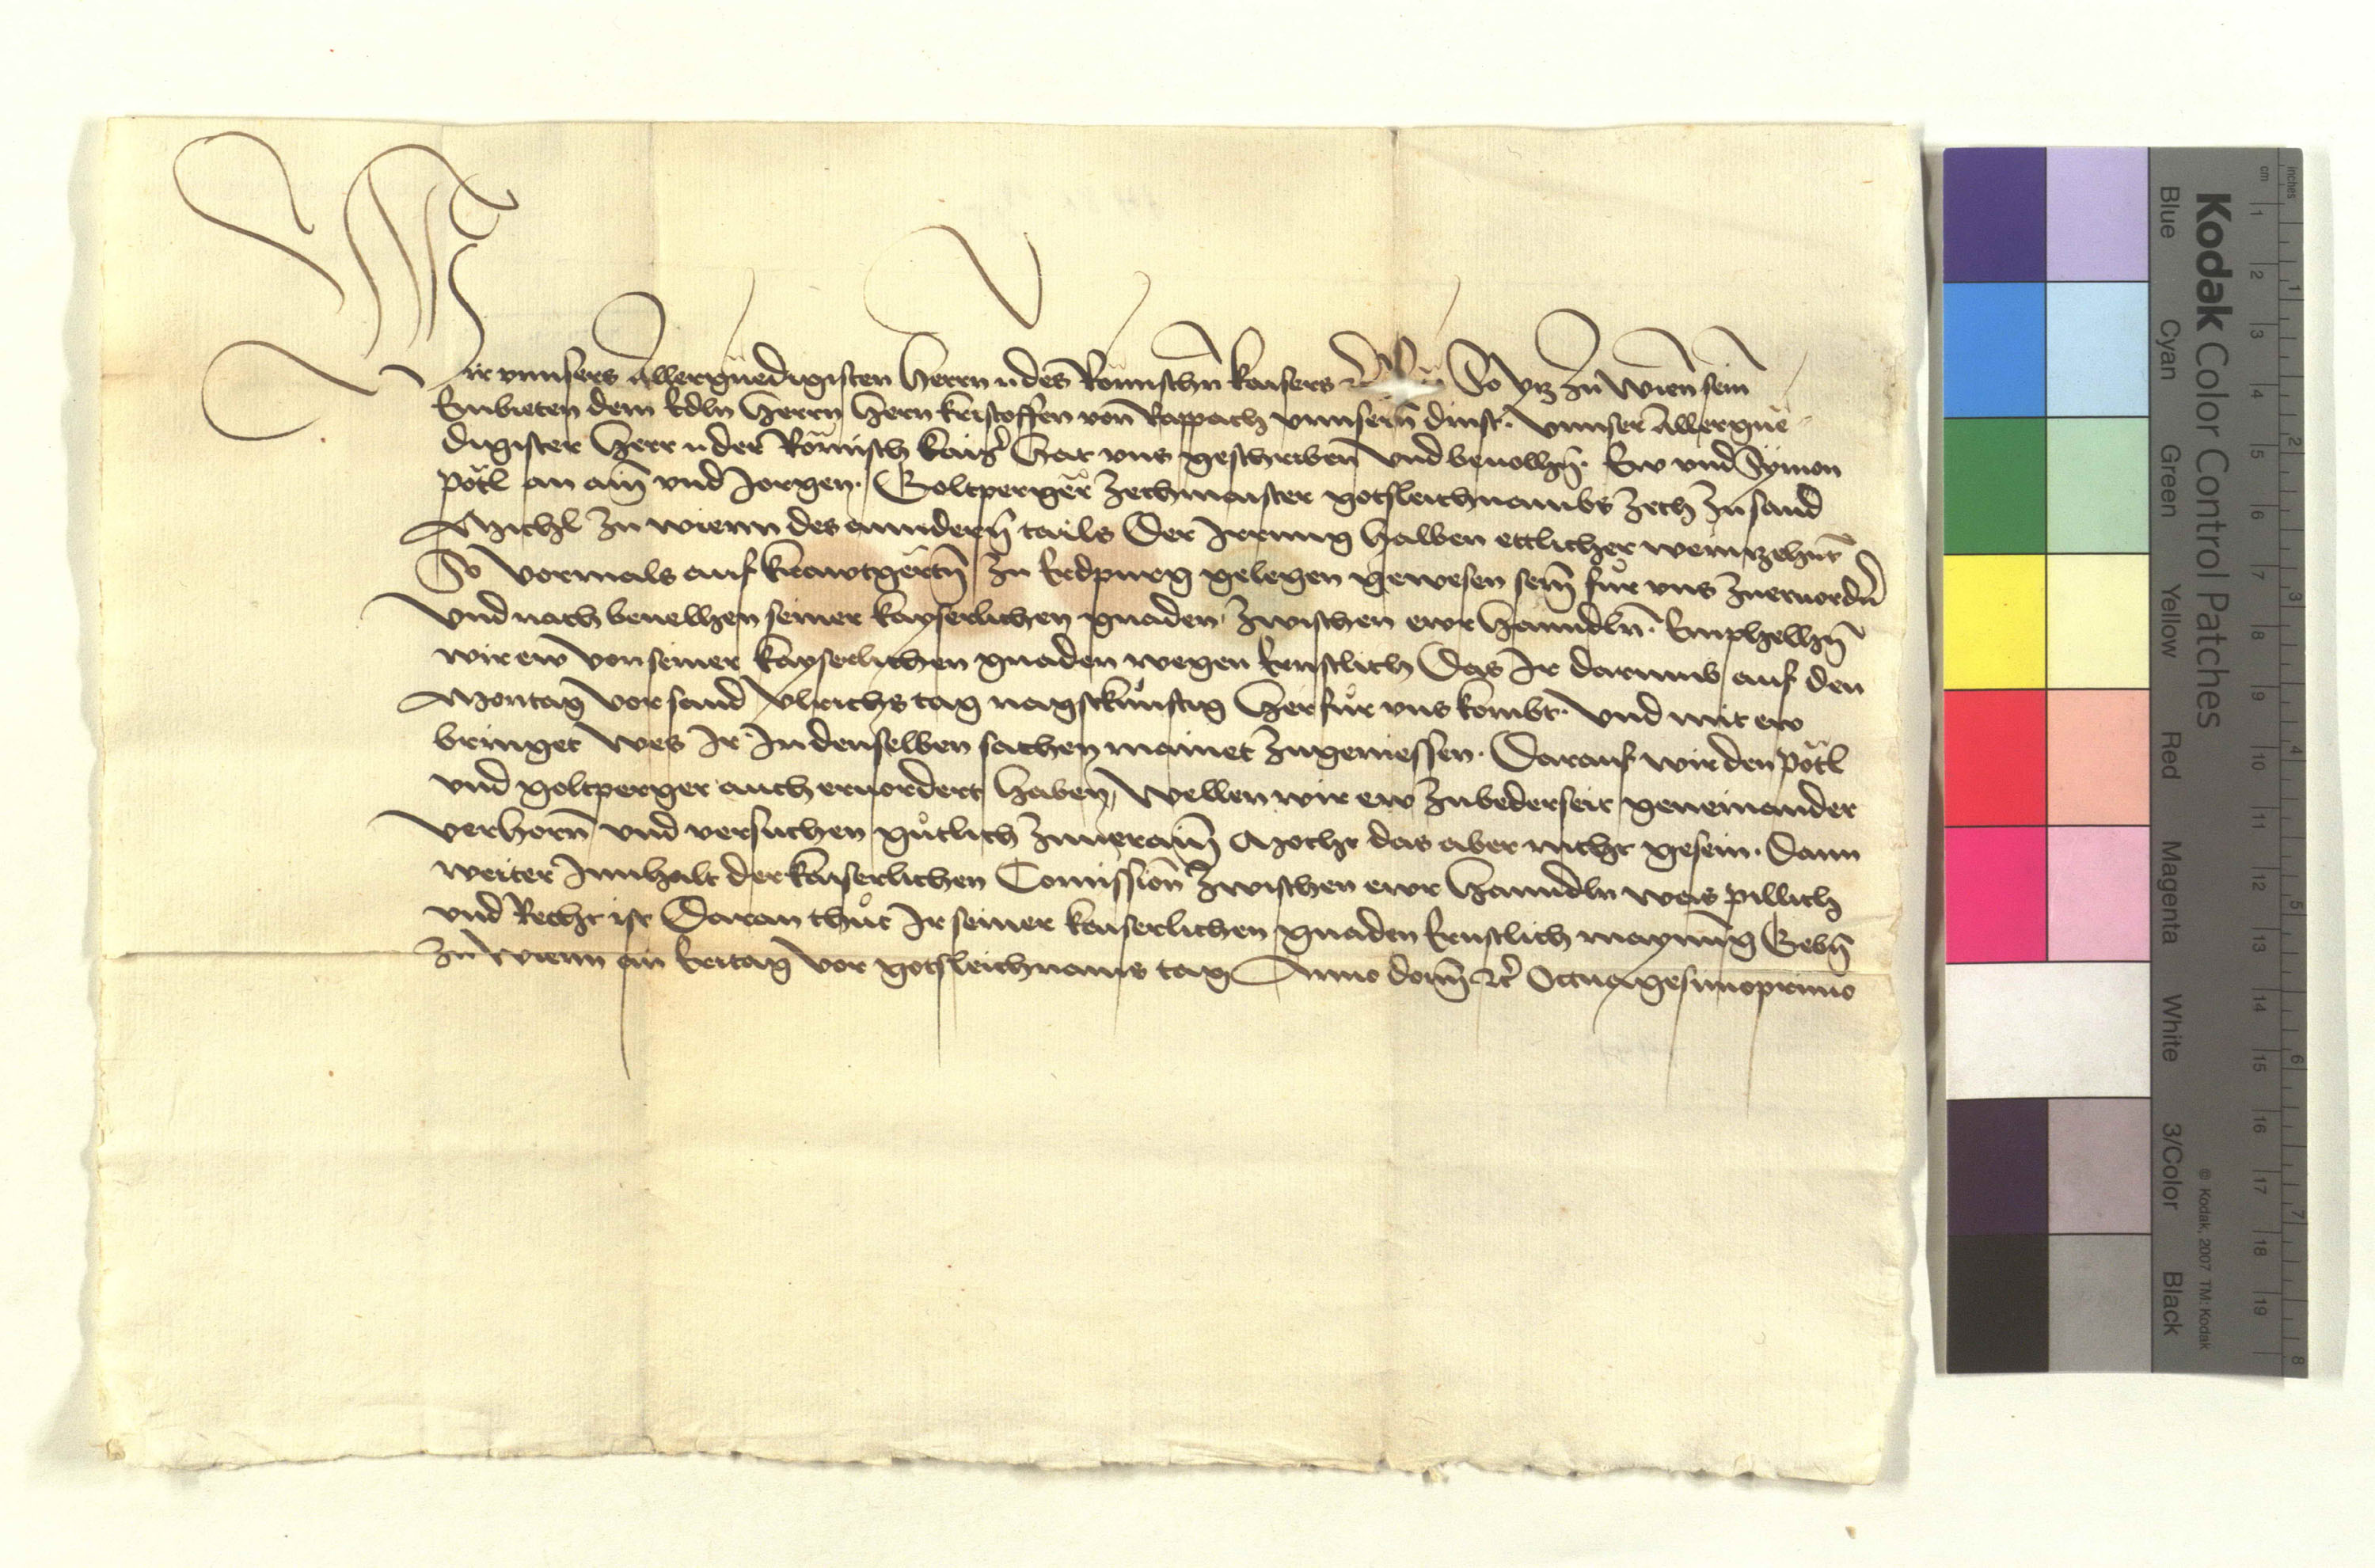 Wir vnnsers Allergnedigisten Herrn n des Römischn kaisers So ytz zu Wienn sein
Embieten dem Edln Herrn Hern kristoffen von Rappach vnnsern dinst. Vnnser Allergne
digister Herr n der Römisch kaiser Hat vns geschriben vnd beuolhn. Ew vnd Symon
pötl an aim vnd Jorgen. Goltperger Zechmaister gotsleichnambs Zech Zu sand
Michl Zu wienn des anndern tails Der Irrung halben ettlicher weinzehnt
So vormals auf krawtgertn Zu Erdpurg gelegen gewesen sein fur vns Zueruordn
Vnd nach beuelhen seiner kayserlichen gnaden Zwischen ewr Hanndln. Emphelhn
wir ew von seiner kayserlichen gnaden wegen Ernstlich Das Ir darumb auf den
Montag Vor sand Vlrichs tag nagstkunftig Her fur vns kombt. Vnd mit ew
bringet Wes Ir In denselben sachen mainet Zugeniessen. Darauf wir den pötl
vnd goltperger auch eruordert Haben, Wellen wir ew Zubederseit geneinander
Verhorn vnd versuchen gutlich Zuuerain Mocht das aber nicht gesein. Dann
weiter Innhalt der kaiserlichen Comission Zwischen ewr Hanndln was pillich
vnd Recht ist Daran thut Ir seiner kaiserlichen gnaden Ernstlich maynung Gebn
Zu Wienn an Eritag vor gotsleichnams tag Anno domin etc Octuagesimoprimo
Kodak Color Control Patches
© Kodak, 2007 TM: Kodak
Blue Cyan Green Yellow Red Magenta White 3/Color Black
cm 1 2 3 4 5 6 7 8 9 10 11 12 13 14 15 16 17 18 19
inches 1 2 3 4 5 6 7 8